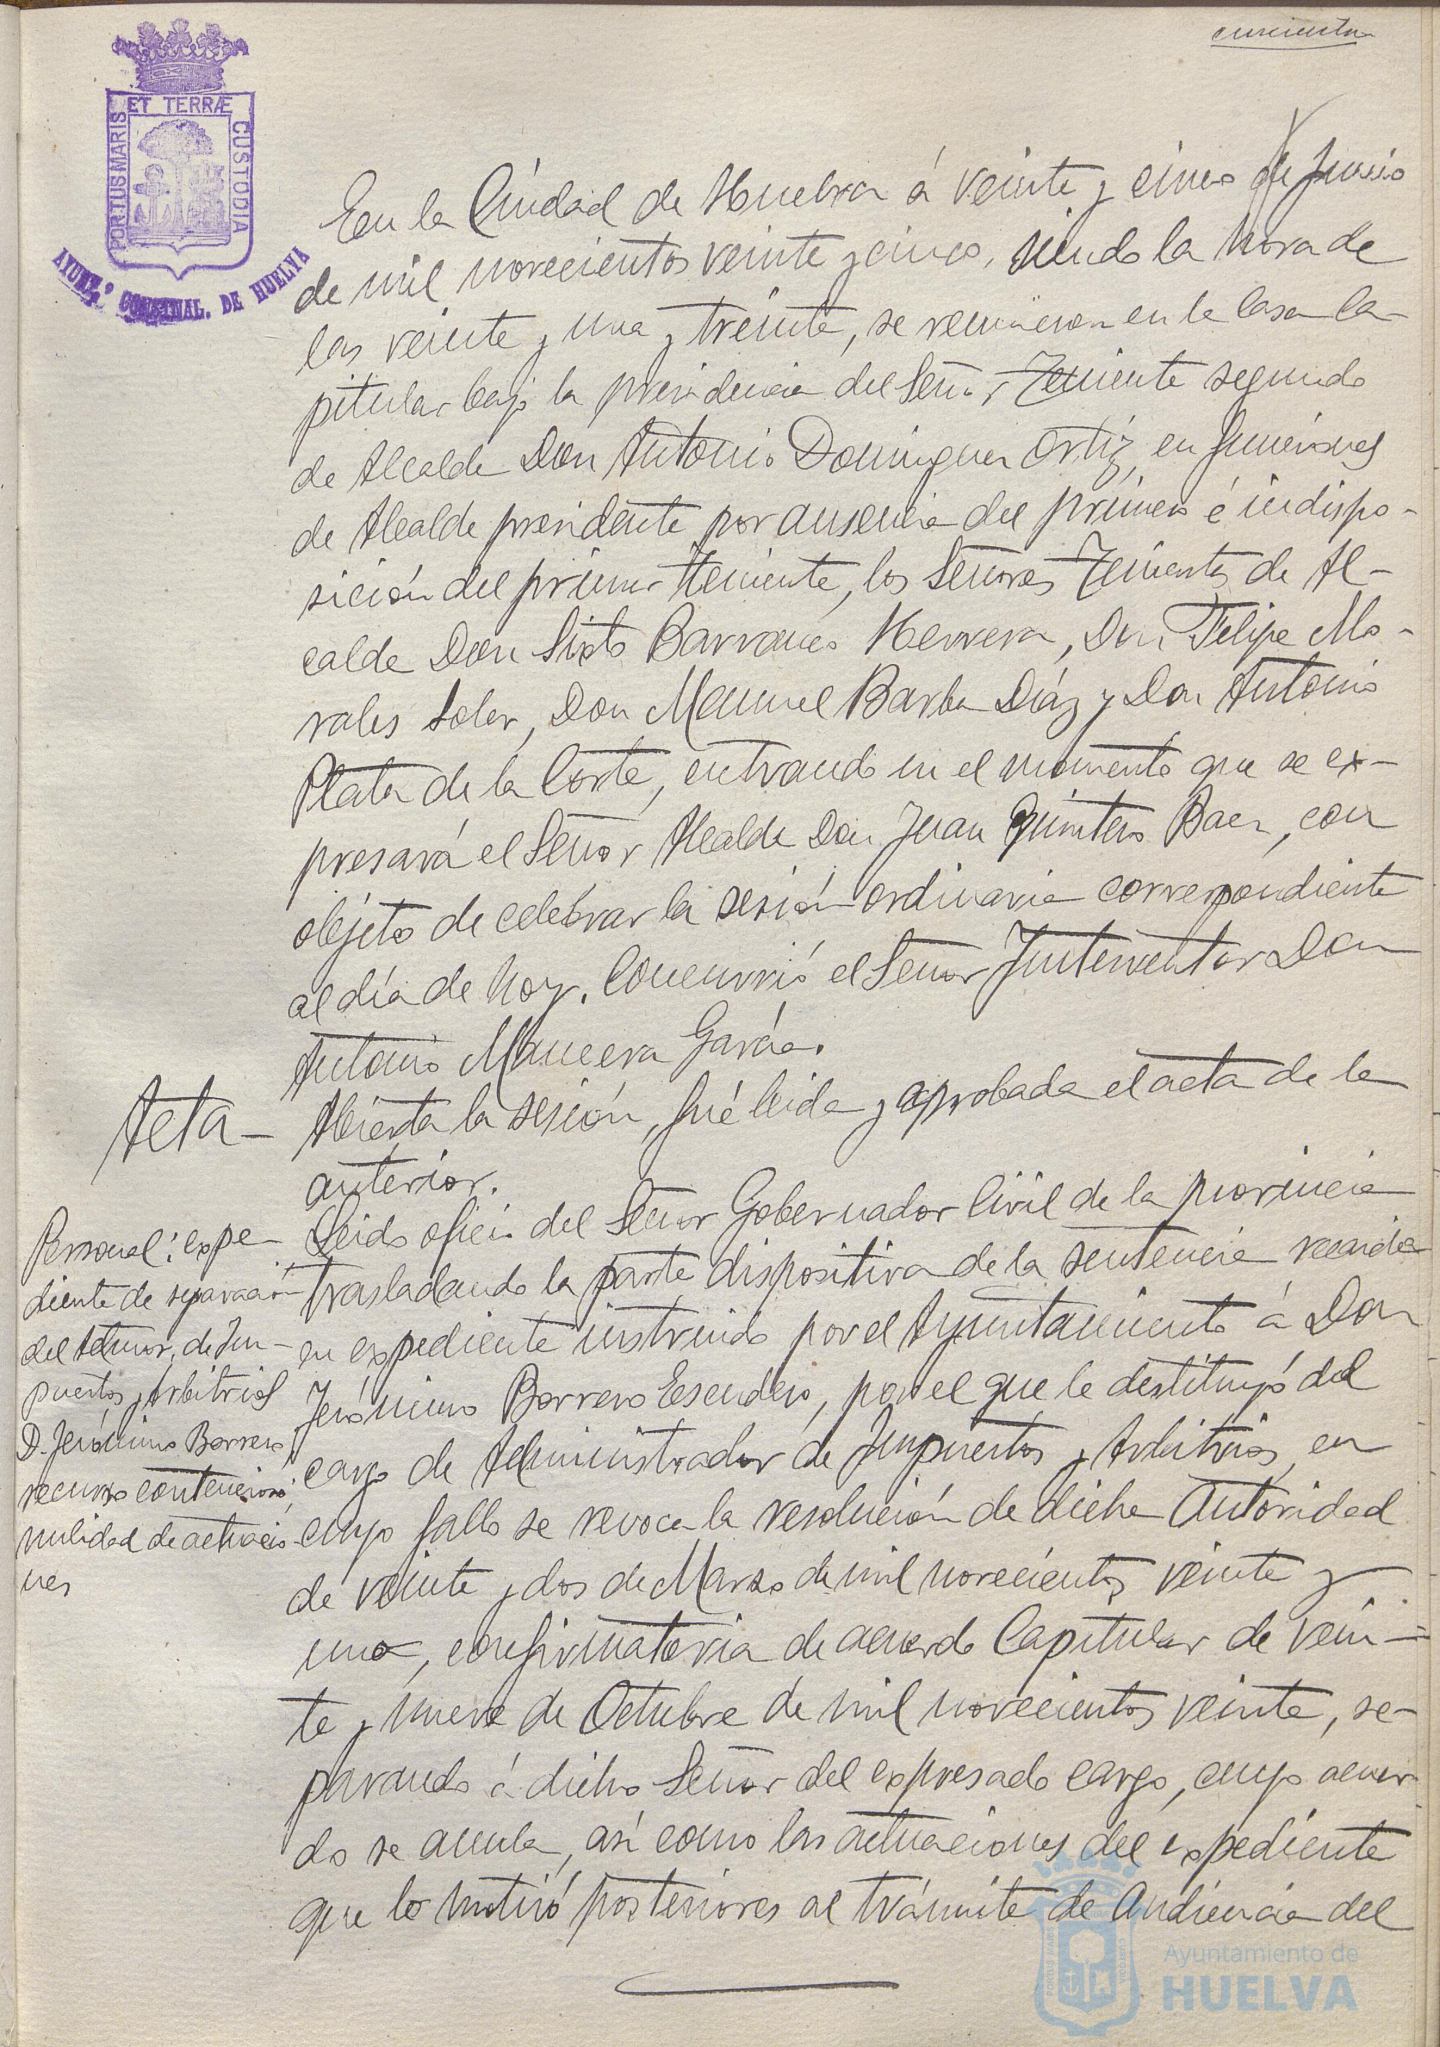 cuarenta
PORTUS MARIS ET TERRÆ CUSTODIA
AYUNT.º CONSTNAL. DE HUELVA
En la Ciudad de Huelva á veinte y cinco de Junio
de mil novecientos veinte y cinco, siendo la hora de
las veinte y una y treinta, se reunieron en la Casa Ca-
pitular bajo la presidencia del Señor Teniente segundo
de Alcalde Don Antonio Dominguez Ortiz, en funciones
de Alcalde presidente por ausencia del primero é indispo-
sición del primer Teniente, los Señores Tenientes de Al-
calde Don Sixto Barranco Herrera, Don Felipe Mo-
rales Soler, Don Manuel Barba Díaz y Don Antonio
Plata de la Corte, entrando en el momento que se ex-
presará el Señor Alcalde Don Juan Quintero Baez, con
objeto de celebrar la sesión ordinaria correspondiente
al día de hoy. Concurrió el Señor Interventor Don
Antonio Mancera García.
Acta-
Abierta la sesión, fué leida y aprobada el acta de la
anterior.
Personal: expe-
diente de separación
del Admor. de Im-
puestos y Arbitrios
D. Jerónimo Borrero
recurso contencioso;
nulidad de actuacio-
nes
Leido oficio del Señor Gobernador Civil de la provincia
trasladando la parte dispositiva de la sentencia recaida
en expediente instruido por el Ayuntamiento á Don
Jerónimo Borrero Escudero, por el que le destituyó del
cargo de Administrador de Impuestos y Arbitrios, en
cuyo fallo se revoca la resolución de dicha Autoridad
de veinte y dos de Marzo de mil novecientos veinte y
uno, confirmatoria de acuerdo Capitular de vein-
te y nueve de Octubre de mil novecientos veinte, se-
parando á dicho Señor del expresado cargo, cuyo acuer-
do se anula, así como las actuaciones del expediente
que lo motivó posteriores al trámite de Audiencia del
Ayuntamiento de
HUELVA